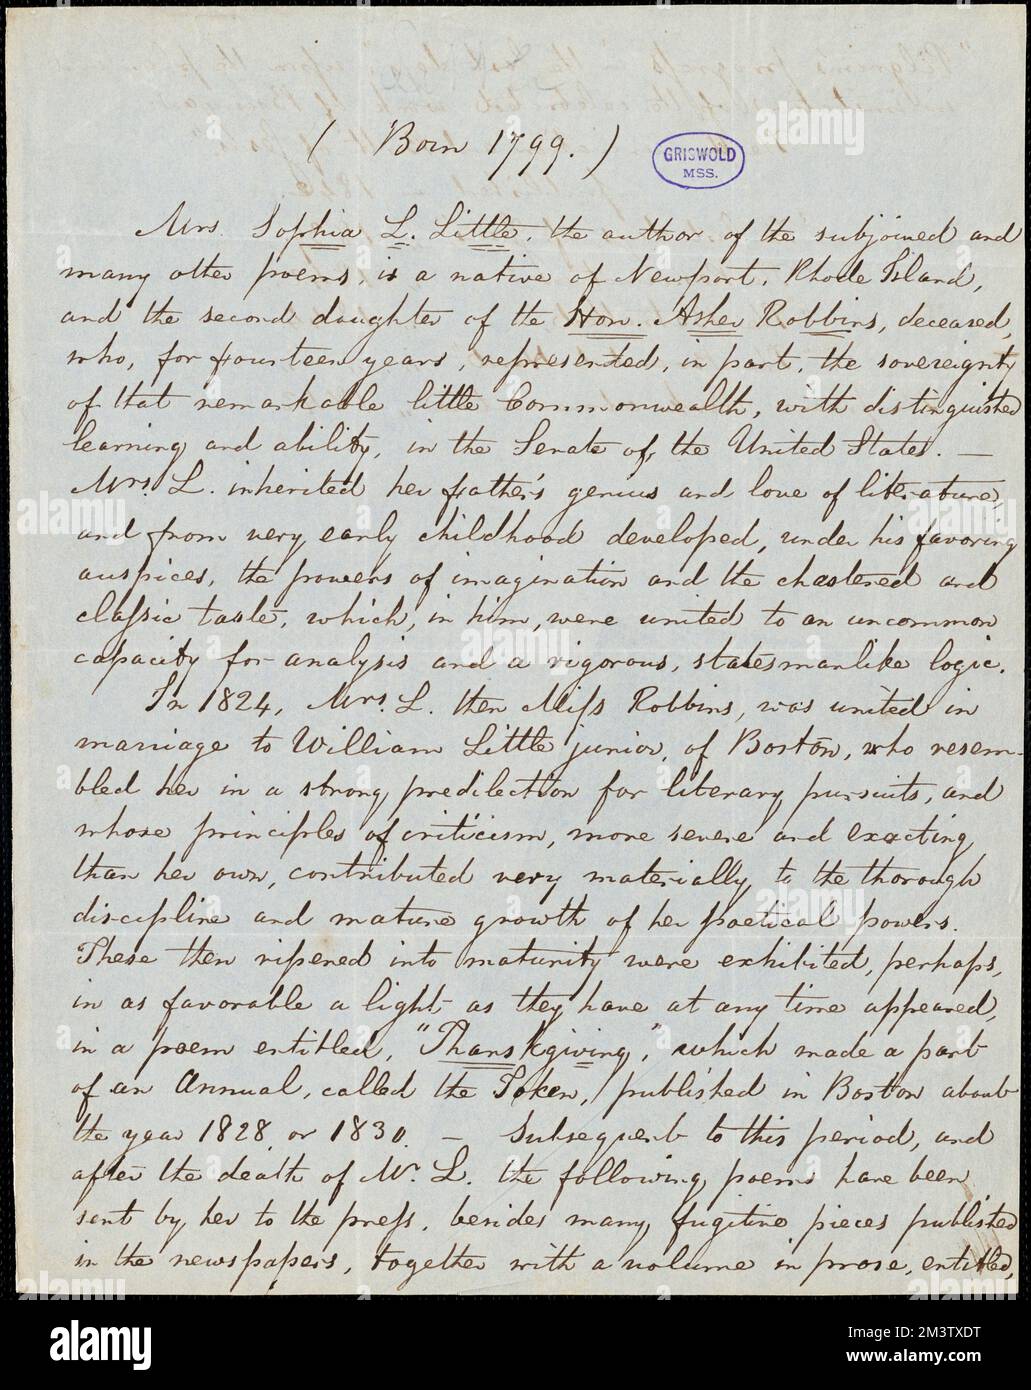 ( Born 1799. )
GRISWOLD
MSS.
Mrs. Sophia L. Little, the author of the subjoined and
many other poems, is a native of Newport, Rhode Island,
and the second daughter of the Hon. Asher Robbins, deceased,
who, for fourteen years, represented, in part, the sovereignty
of that remarkable little Commonwealth, with distinguished
learning and ability, in the Senate of the United States. —
Mrs. L. inherited her father's genius and love of literature,
and from very early childhood developed, under his favoring
auspices, the powers of imagination and the chastened and
classic taste, which, in him, were united to an uncommon
capacity for analysis and a vigorous, statesmanlike logic.
In 1824, Mrs. L. then Miss Robbins, was united in
marriage to William Little junior, of Boston, who resem-
bled her in a strong predilection for literary pursuits, and
whose principles of criticism, more severe and exacting
than her own, contributed very materially to the thorough
discipline and mature growth of her poetical powers.
These then ripened into maturity were exhibited, perhaps,
in as favorable a light as they have at any time appeared,
in a poem entitled, "Thanskgiving," which made a part
of an Annual, called the Token, published in Boston about
the year 1828 or 1830. — Subsequent to this period, and
after the death of Mr. L. the following poems have been
sent by her to the press, besides many fugitive pieces published
in the newspapers, together with a volume in prose, entitled,
alamy
Image ID: 2M3TXDT
www.alamy.com